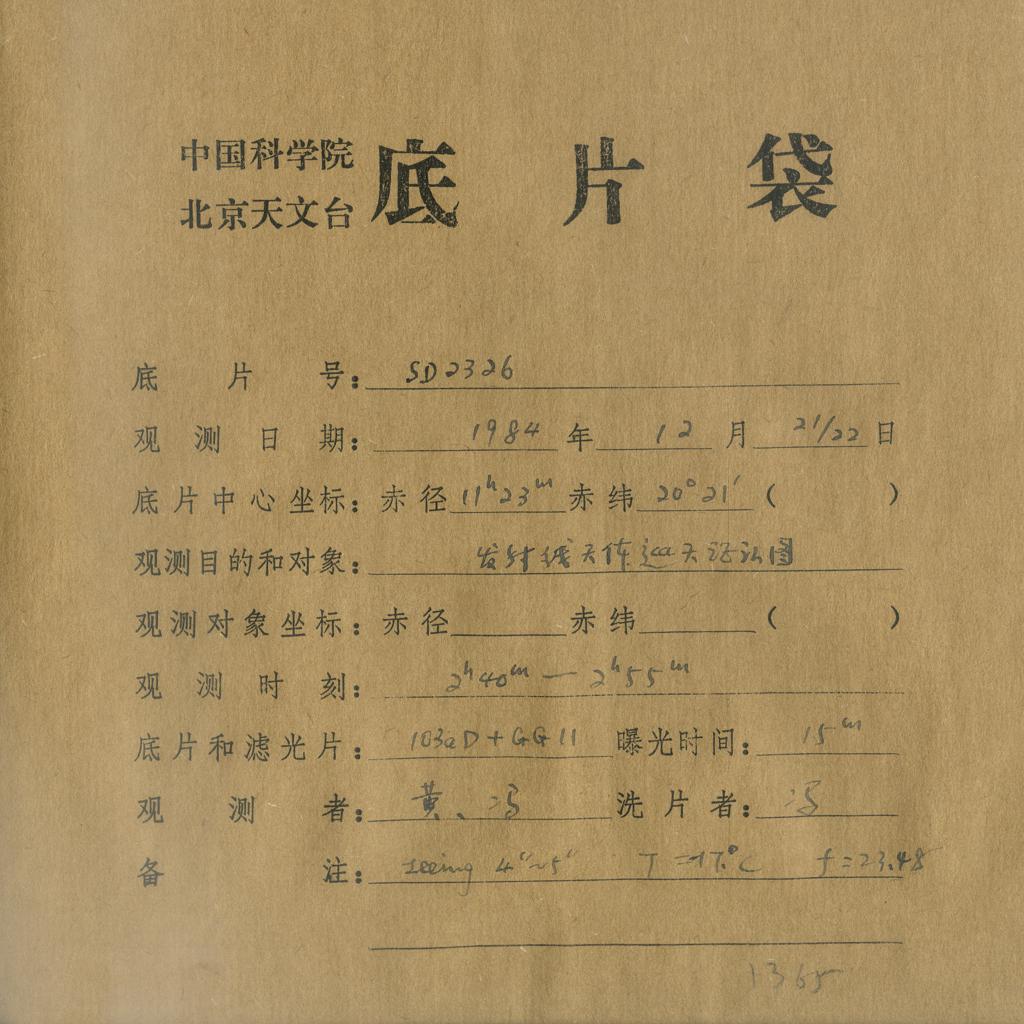 中国科学院
北京天文台
底片袋
底片号：SD2326
观测日期：1984年12月21/22日
底片中心坐标：赤径11ʰ23ᵐ赤纬20°21′（ ）
观测目的和对象：发射线天体巡天证认图
观测对象坐标：赤径 赤纬 （ ）
观测时刻：2ʰ40ᵐ — 2ʰ55ᵐ
底片和滤光片：103aD+GG11 曝光时间：15ᵐ
观测者：黄、冯 洗片者：冯
备注：seeing 4″~5″ T = f=23.48
1365